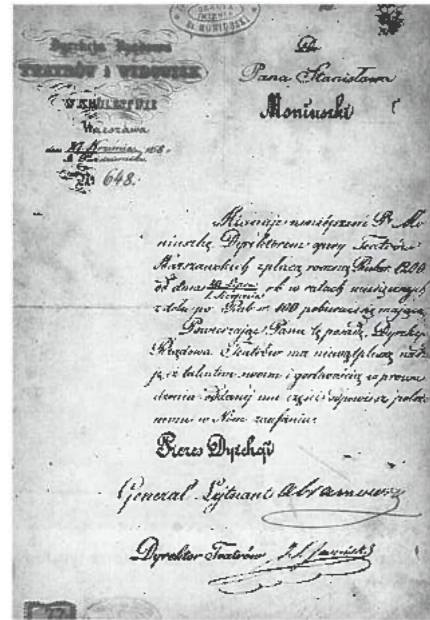 Dyrekcja Rządowa
TEATRÓW I WIDOWISK
W KRÓLESTWIE
Warszawa
dnia 27 Września 1858 r.
Października
№ 648.
Do
Pana Stanisława
Moniuszki
Mianuję niniejszem P. Mo
niuszkę Dyrektorem opery Teatrów
Warszawskich z płacą roczną Rubsr. 1200
od dnia 20 Lipca rb w ratach miesięcznych
1 Sierpnia
z dołu po Rub sr. 100 pobierać się mającą
Powierzając Panu tę posadę, Dyrekcja
Rządowa Teatrów ma niewątpliwą nadzie
ję iż talentem swoim i gorliwością w prowa
dzeniu oddanej mu części odpowiesz położo
nemu w Nim zaufaniu.
Prezes Dyrekcji
Generał Lejtnant Abramowicz
Dyrektor Teatrów
77